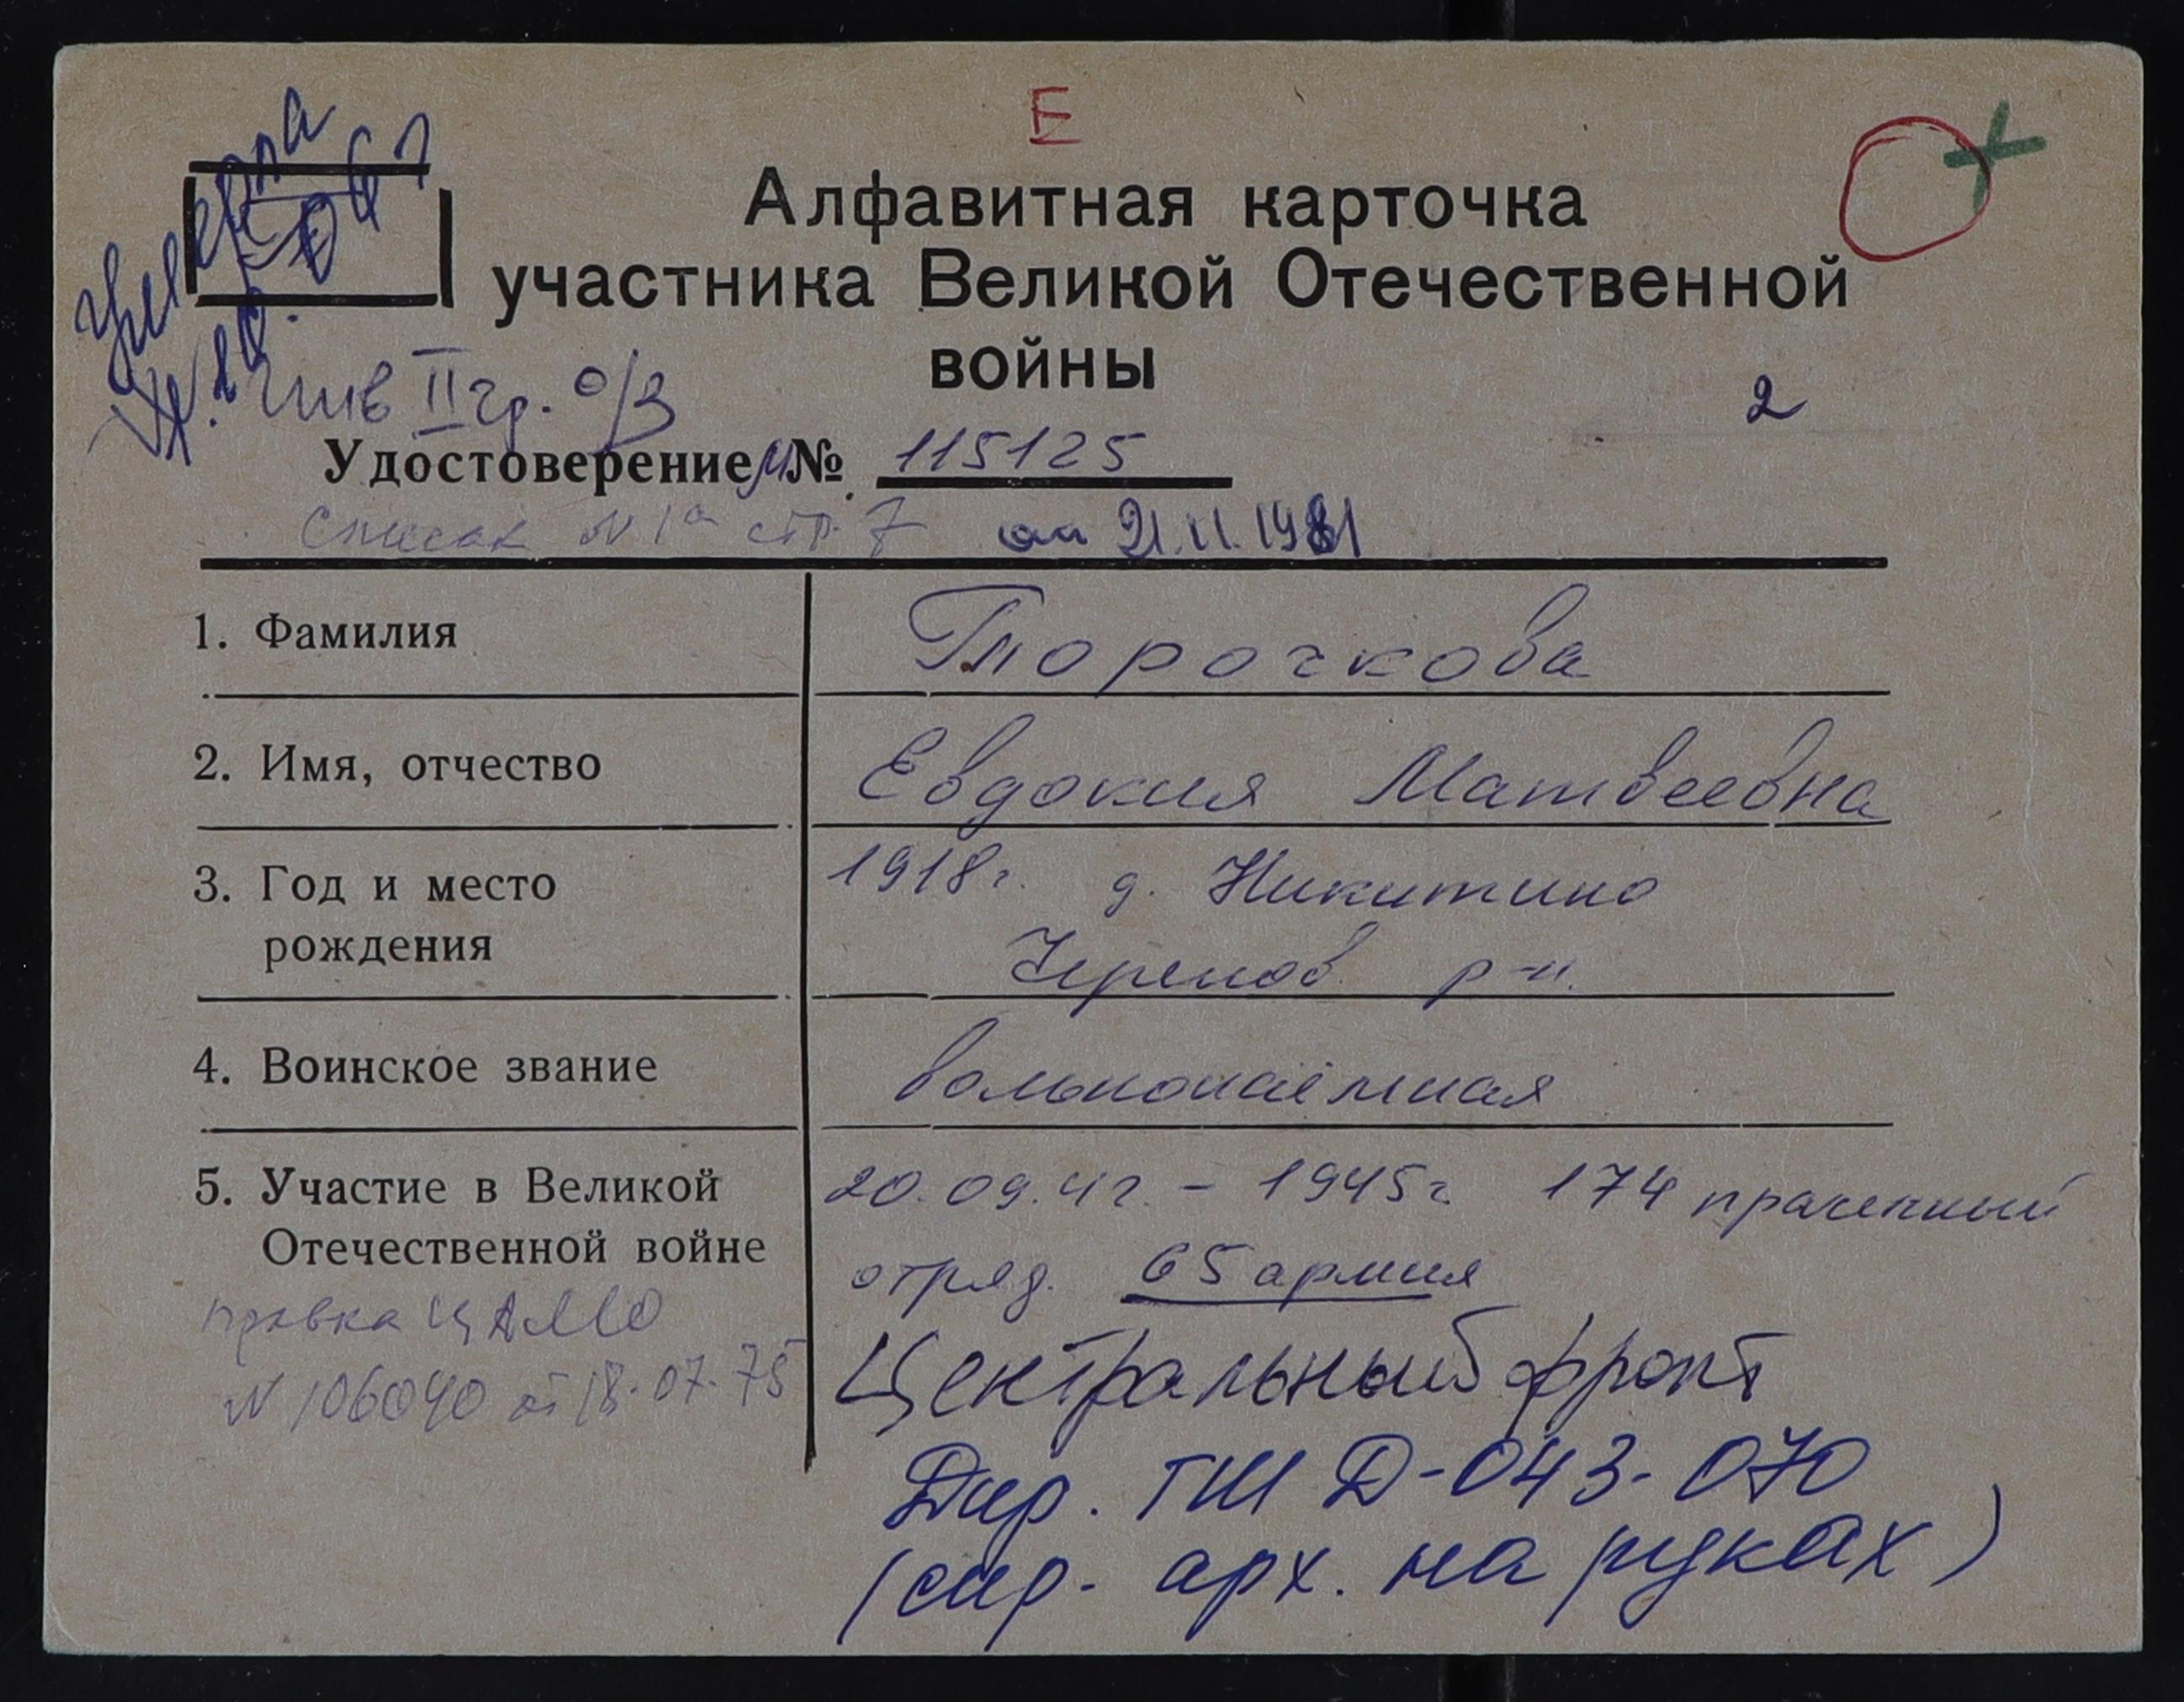 Е
умерла
Алфавитная карточка
участника Великой Отечественной
войны
инв II гр. о/з
2
Удостоверение № 115125
Список № 1а стр. 7 от 21.11.1981
1. Фамилия
Торочкова
2. Имя, отчество
Евдокия Матвеевна
3. Год и место
рождения
1918г. д. Никитино
Черепов. р-н.
4. Воинское звание
вольнонаёмная
5. Участие в Великой
Отечественной войне
20.09.41г. - 1945г 174 прачечный
отряд. 65 армия
Центральный фронт
Дир. ГШ Д-043-070
(спр. арх. на руках)
правка ЦАМО
N 106040 от 18.07.75